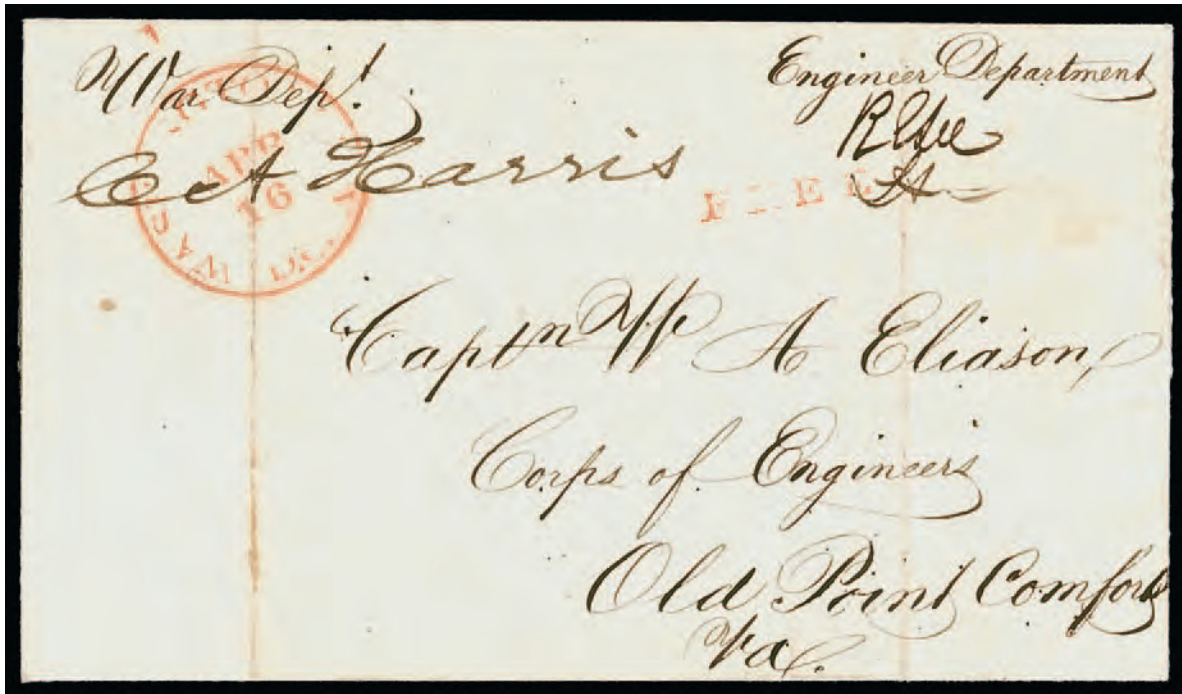 War Dept.
C A Harris
WASHINGTON CITY
APR
16
D.C.
Engineer Department
R E Lee
Lt.
FREE
Captn W A Eliason,
Corps of Engineers
Old Point Comfort
Va.